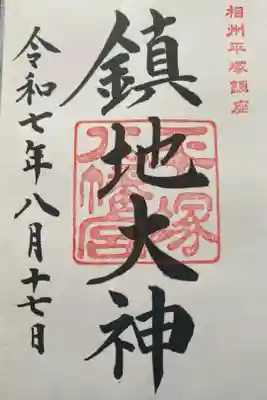 相州平塚鎮座
鎮地大神
平塚八幡宮
令和七年八月十七日